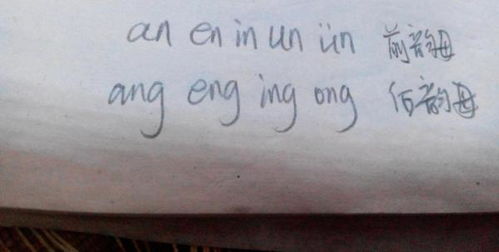 an en in un ün 前韵母
ang eng ing ong 后韵母